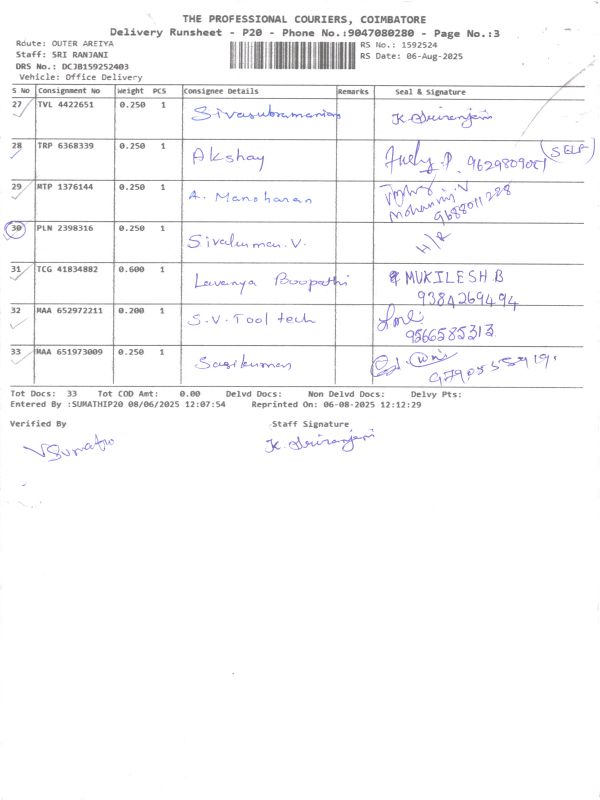 THE PROFESSIONAL COURIERS, COIMBATORE
Delivery Runsheet - P20 - Phone No.:9047080280 - Page No.:3
Route: OUTER AREIYA
Staff: SRI RANJANI
DRS No.: DCJB159252403
Vehicle: Office Delivery
RS No.: 1592524
RS Date: 06-Aug-2025
S No Consignment No Weight PCS Consignee Details Remarks Seal & Signature
27 TVL 4422651 0.250 1 Sivasubramaniam K. Sriranjani
28 TRP 6368339 0.250 1 Akshay (SELF)
29 MTP 1376144 0.250 1 A. Manoharan
Mohanraj.V
9688011228
30 PLN 2398316 0.250 1 Sivakumar.V.
31 TCG 41834882 0.600 1 Lavanya Boopathi MUKILESH B
9384269494
32 MAA 652972211 0.200 1 S.V.Tool tech
9566585313
33 MAA 651973009 0.250 1 Sasikumar
Tot Docs: 33 Tot COD Amt: 0.00 Delvd Docs: Non Delvd Docs: Delvy Pts:
Entered By :SUMATHIP20 08/06/2025 12:07:54 Reprinted On: 06-08-2025 12:12:29
Verified By Staff Signature
K. Sriranjani